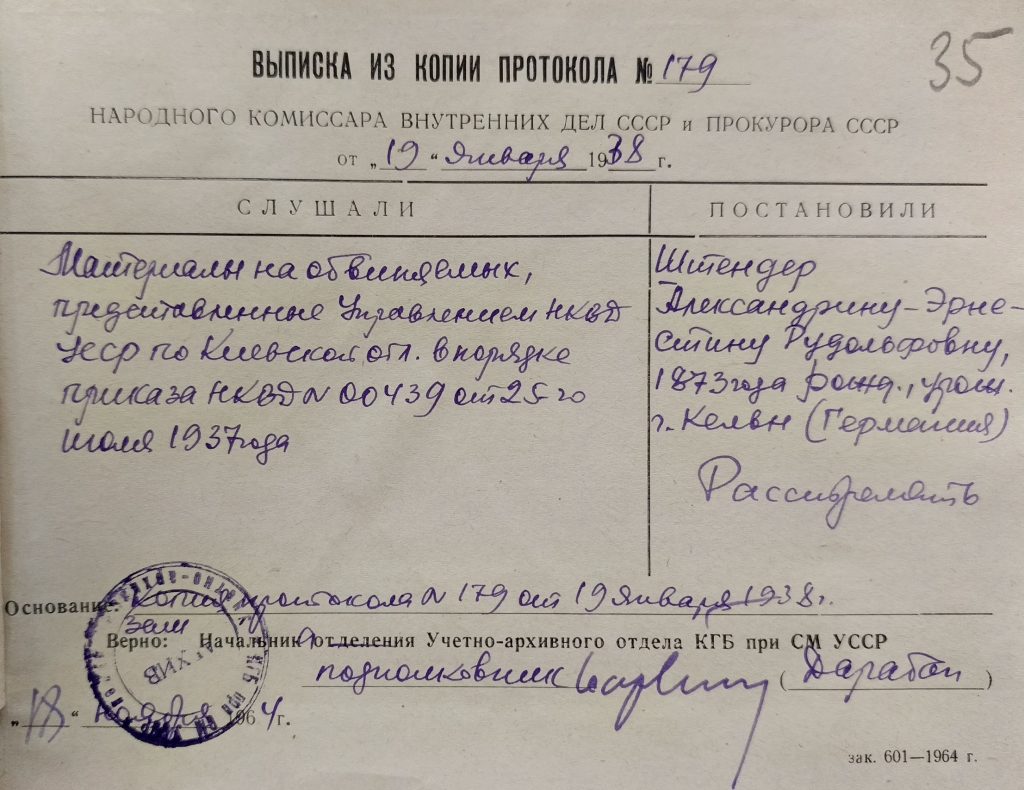 35
ВЫПИСКА ИЗ КОПИИ ПРОТОКОЛА № 179
НАРОДНОГО КОМИССАРА ВНУТРЕННИХ ДЕЛ СССР и ПРОКУРОРА СССР
от „19“ января 1938 г.
СЛУШАЛИ
Материалы на обвиняемых,
представленные Управлением НКВД
УССР по Киевской обл. в порядке
приказа НКВД № 00439 от 25-го
июля 1937 года
ПОСТАНОВИЛИ
Штендер
Александрину-Эрне-
стину Рудольфовну,
1873 года рожд., урож.
г. Кельн (Германия)
Расстрелять
Основание: Копия протокола № 179 от 19 января 1938 г.
Зам
Верно: Начальник отделения Учетно-архивного отдела КГБ при СМ УССР
подполковник (Дарабан)
„18“ 1964 г.
АРХИВ
КГБ при СМ УССР
зак. 601—1964 г.